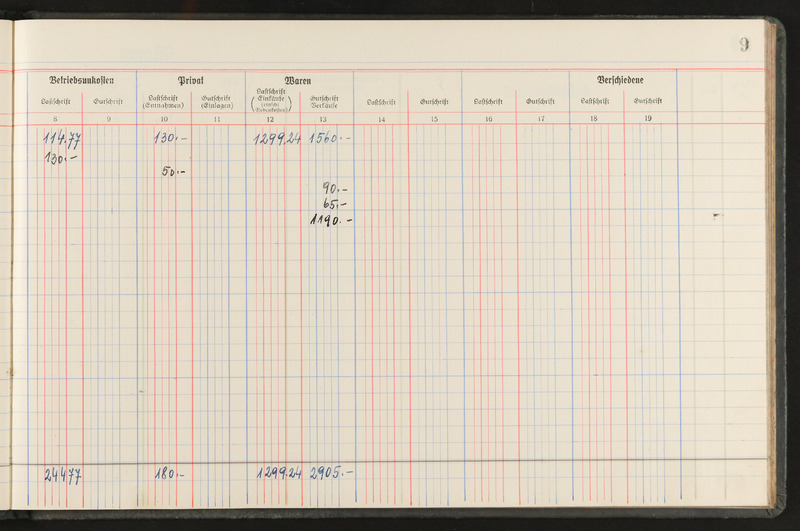 9
Betriebsunkosten Privat Waren Verschiedene
Lastschrift Gutschrift Lastschrift (Entnahmen) Gutschrift (Einlagen) Lastschrift (Einkäufe Gutschrift Verkäufe Lastschrift Gutschrift Lastschrift Gutschrift Lastschrift Gutschrift
8 9 10 11 12 13 14 15 16 17 18 19
114.77 130.- 1299.24 1560.-
130.-
50.-
90.-
65.-
1190.-
24477 180.- 1299.24 2905.-